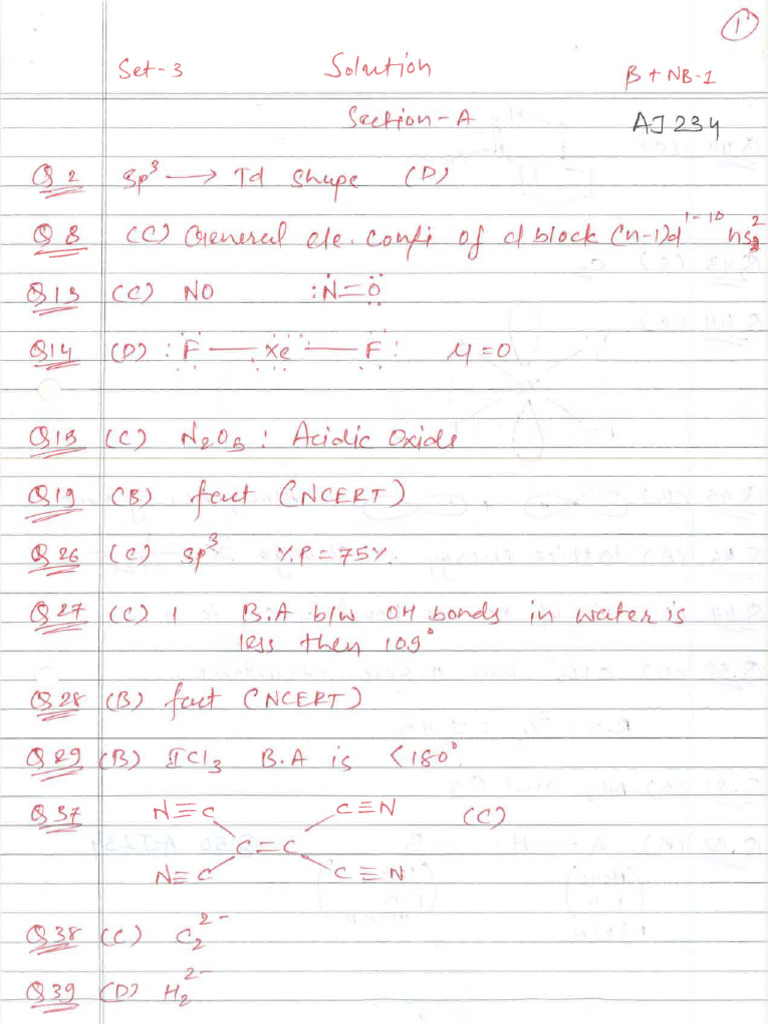 1
Set-3 Solution B + NB-1
Section-A AJ234
Q2 sp³ → Td shape (D)
Q8 (C) General ele. confi of d block (n-1)d¹⁻¹⁰ ns²
Q13 (C) NO :N=O
Q14 (D) :F — Xe — F: μ=0
Q15 (C) N₂O₅ : Acidic Oxide
Q19 (B) fact (NCERT)
Q26 (C) sp³ %P = 75%.
Q27 (C) 1 B.A b/w OH bonds in water is
less then 109°
Q28 (B) fact (NCERT)
Q29 (B) ICl₃ B.A is <180°
Q37 N≡C C≡N (C)
C=C
N≡C C≡N
Q38 (C) C₂²⁻
Q39 (D) H₂²⁻